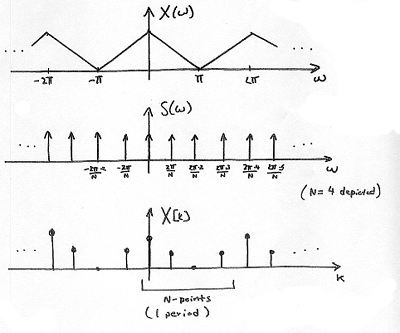 X(ω)
... ...
-2π -π π 2π ω
S(ω)
... ...
-2π·2/N -2π/N 2π/N 2π·2/N 2π·3/N 2π·4/N 2π·5/N ω
(N=4 depicted)
X[k]
... ...
k
N-points
(1 period)